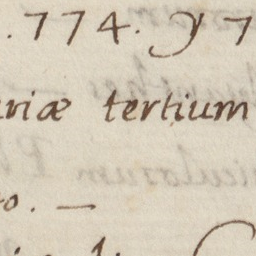 .774. y 7
riæ tertium
o. —